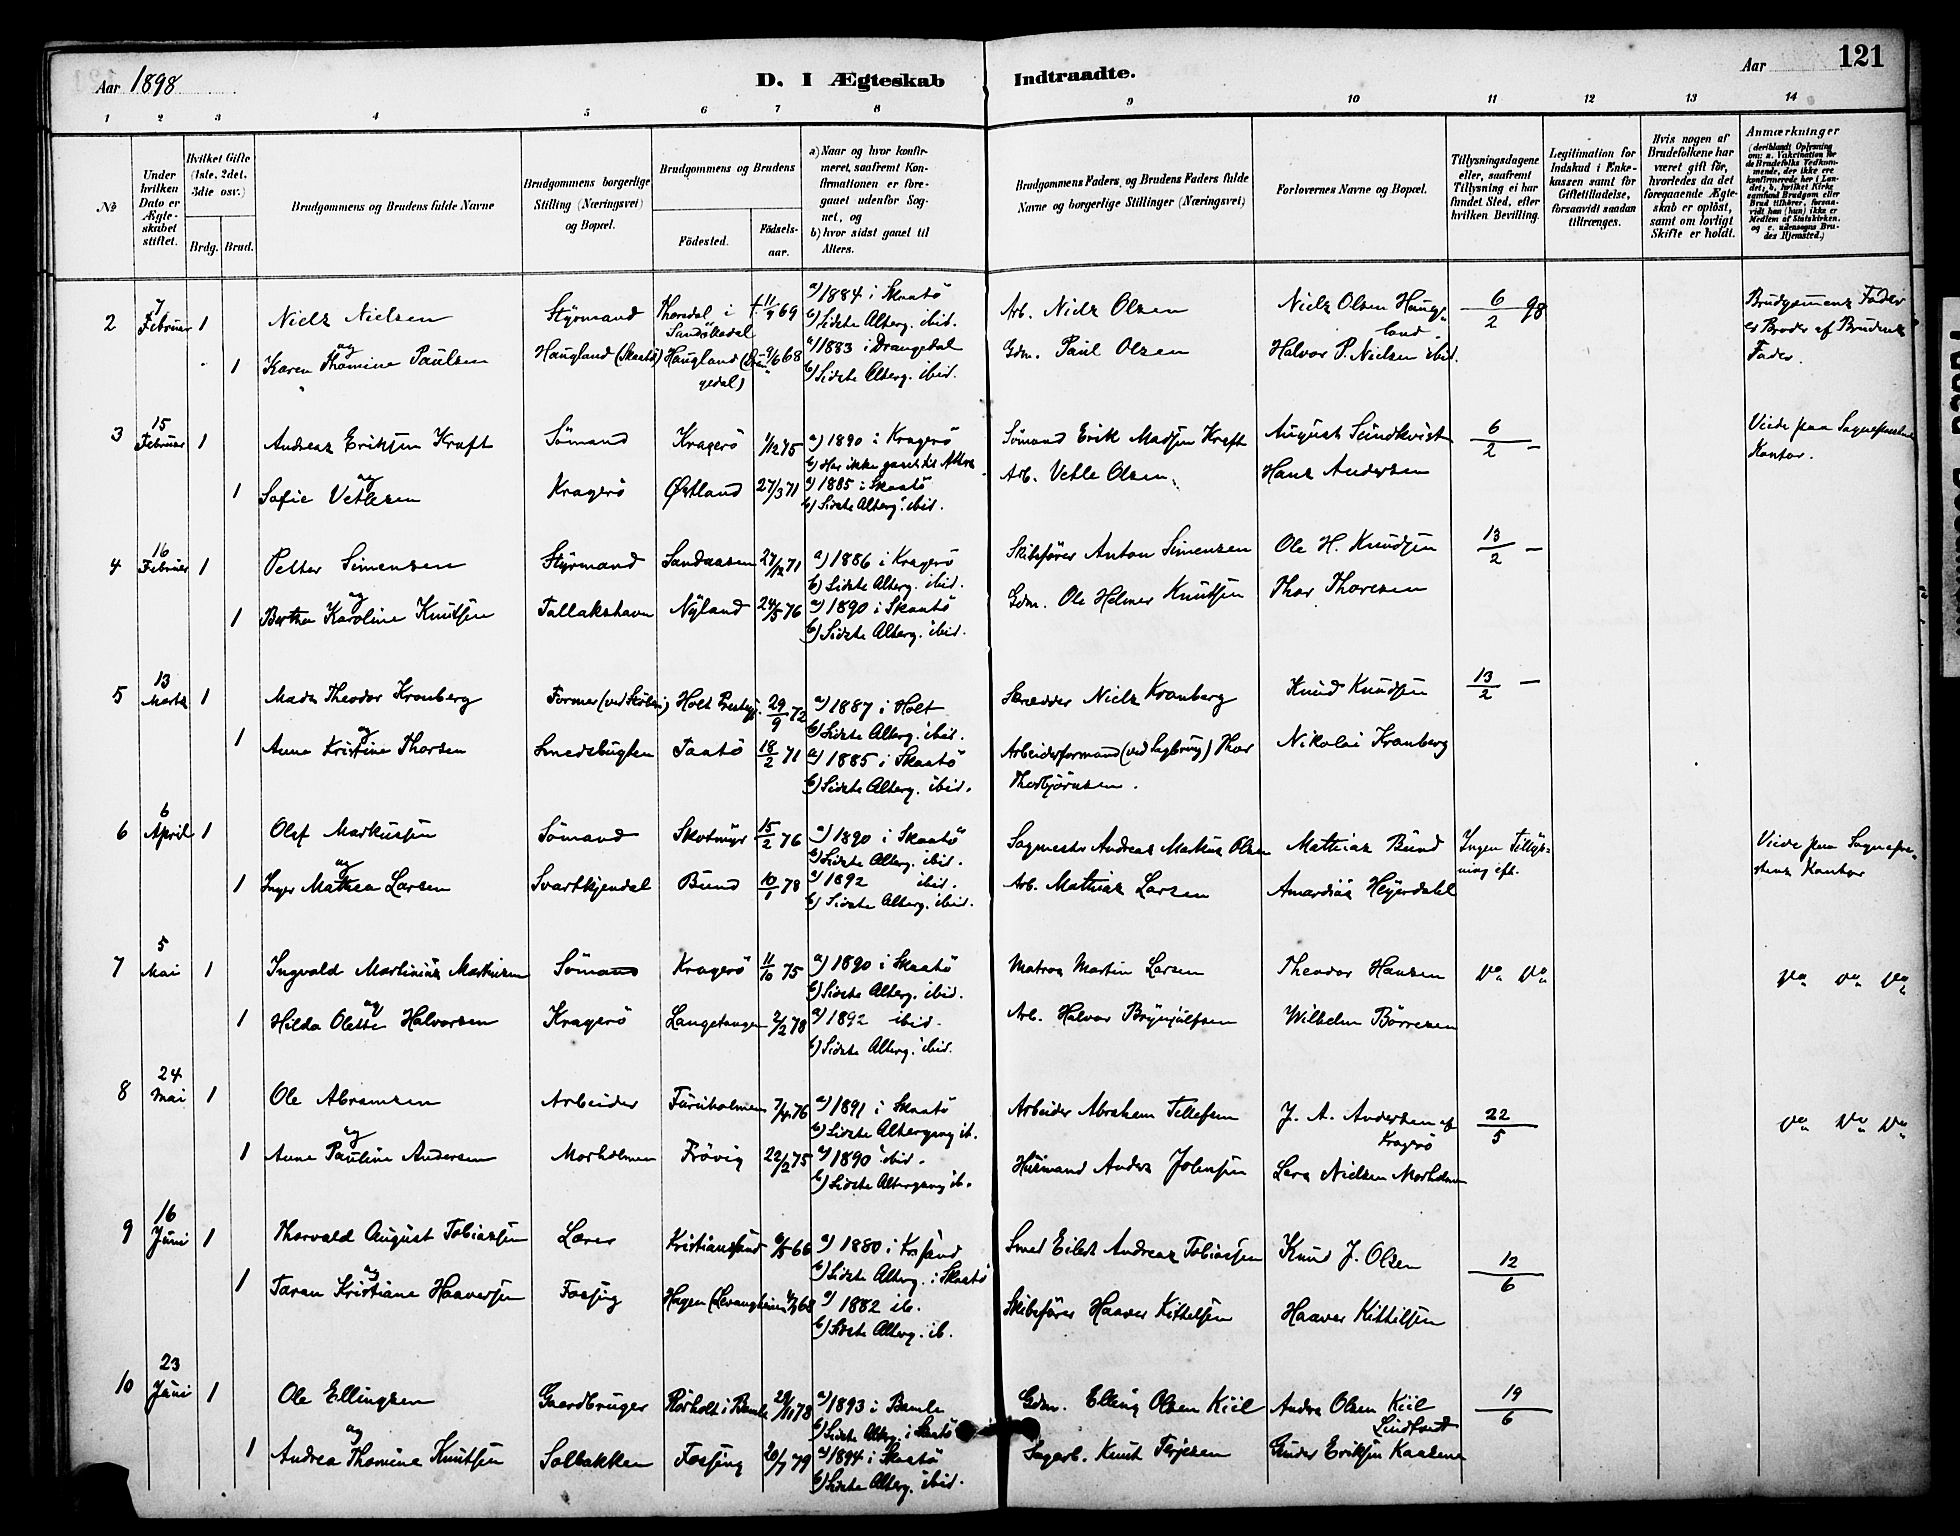 Aar 1898
D. I Ægteskab Indtraadte.
Aar
121
1 2 3 4 5 6 7 8 9 10 11 12 13 14
№
Under hvilken Dato er Ægteskabet stiftet.
Hvilket Gifte (1ste, 2det, 3die osv.)
Brdg. Brud.
Brudgommens og Brudens fulde Navne
Brudgommens borgerlige Stilling (Næringsvei) og Bopæl.
Brudgommens og Brudens
Fødested.
Fødselsaar.
a) Naar og hvor konfirmeret, saafremt Konfirmationen er foregaaet udenfor Sognet, og
b) hvor sidst gaaet til Alters.
Brudgommens Faders, og Brudens Faders fulde Navne og borgerlige Stillinger (Næringsvei)
Forlovernes Navne og Bopæl.
Tillysningsdagene eller, saafremt Tillysning ei har fundet Sted, efter hvilken Bevilling.
Legitimation for Indskud i Enkekassen samt for Giftetilladelse, forsaavidt saadan tiltrænges.
Hvis nogen af Brudefolkene har været gift før, hvorledes da det foregaaende Ægteskab er opløst, samt om lovligt Skifte er holdt.
Anmærkninger (deriblandt Oplysning om: a. Vakcination for de Brudefolks Vedkommende, der ikke ere konfirmerede her i Landet; b. hvilket Kirkesamfund Brudgom eller Brud tilhører, forsaavidt han (hun) ikke er Medlem af Statskirken, og c. udensogns Brudes Hjemsted.)
2 7 Februar 1 Niels Nielsen Styrmand Thoredal i Sandøkedal 11/9 69 a) 1884 i Skaatö b) Sidste Alterg. ibid. Arb. Niels Olsen Niels Olsen Haugland 6/2 98 Brudgommens Fader er Broder af Brudens Fader.
og
1 Karen Thomine Paulsen Haugland (Skaatö) Haugland (Drangedal) 9/6 68 a) 1883 i Drangedal b) Sidste Alterg. ibid. Gdm. Paul Olsen Halvor P. Nielsen ibid.
3 15 Februar 1 Andreas Eriksen Kraft Sömand Kragerö 1/12 75 a) 1890 i Kragerö b) Har ikke gaaet til Alters Sömand Erik Madsen Kraft August Sundkvist 6/2 — Viede paa Sognepræstens Kontor.
og
1 Sofie Vetlesen Kragerö Østland 27/3 71 a) 1885 i Skaatö b) Sidste Alterg. ibid. Arb. Vetle Olsen Hans Andersen
4 16 Februar 1 Petter Simensen Styrmand Sandaasen 27/12 71 a) 1886 i Kragerö b) Sidste Alterg. ibid. Skibsförer Anton Simensen Ole H. Knudsen 13/2 —
og
1 Berthe Karoline Knutsen Tallakshavn Nyland 24/5 76 a) 1890 i Skaatö b) Sidste Alterg. ibid. Gdm. Ole Helmer Knutsen Thor Thoresen
5 13 Marts 1 Mads Theodor Kranberg Former (ved Stöberi) Holt Prestegj. 29/9 72 a) 1887 i Holt b) Sidste Alterg. ibid. Skrædder Niels Kranberg Knud Knudsen 13/2 —
og
1 Anne Kristine Thorsen Smedsbugten Taatö 18/2 71 a) 1885 i Skaatö b) Sidste Alterg. ibid. Arbeiderformand (ved Sagbrug) Thor Thorbjörnsen. Nikolai Kranberg
6 6 April 1 Olef Markussen Sömand Skotmyr 15/2 76 a) 1890 i Skaatö b) Sidste Alterg. ibid. Sagmester Andreas Markus Olsen Mathias Bund Ingen Tillysning eft. Viede paa Sognepræstens Kontor
og
1 Inger Mathea Larsen Svartkjendal Bund 78 a) 1892 ibid. b) Sidste Alterg. ibid. Arb. Mathias Larsen Amandus Heyerdahl
7 5 Mai 1 Ingvald Martinius Martinsen Sömand Kragerö 11/10 75 a) 1890 i Skaatö b) Sidste Alterg. ibid. Matros Martin Larsen Theodor Hansen Do Do Do Do Do
og
1 Hilda Olette Halvorsen Kragerö Langetangen 2/2 78 a) 1892 ibid. b) Sidste Alterg. ibid. Arb. Halvor Brynjulfsen Wilhelm Börresen
8 24 Mai 1 Ole Abramsen Arbeider Furuholmen 7/4 76 a) 1891 i Skaatö b) Sidste Altergang ib. Arbeider Abraham Tellefsen J. A. Andersen af Kragerö 22/5 Do Do Do
og
1 Anne Pauline Andersen Morholmen Frövig 22/2 75 a) 1890 ibid. b) Sidste Altergang ib. Husmand Anders Johnsen Lars Nielsen Morholmen
9 16 Juni 1 Thorvald August Tobiassen Lærer Kristianssand 6/5 66 a) 1880 i Krsand b) Sidste Alterg. i Skaatö Smed Eilert Andreas Tobiassen Knud J. Olsen 12/6
og
1 Taran Kristiane Haaversen Fossing Hagen (Levangsheien) 68 a) 1882 ib. b) Sidste Alterg. ib. Skibsförer Haaver Kittelsen Haaver Kittelsen
10 23 Juni 1 Ole Ellingsen Gaardbruger Rörholt i Bamle 29/11 78 a) 1893 i Bamle b) Sidste Alterg. i Skaatö Gdm. Elling Olsen Kiil Anders Olsen Kiil Lindtvedt 19/6
og
1 Andrea Thomine Knutsen Solbakken Fossing 20/7 79 a) 1894 i Skaatö b) Sidste Alterg. ibid. Sagarb. Knut Terjesen Gunder Eriksen Kaasene